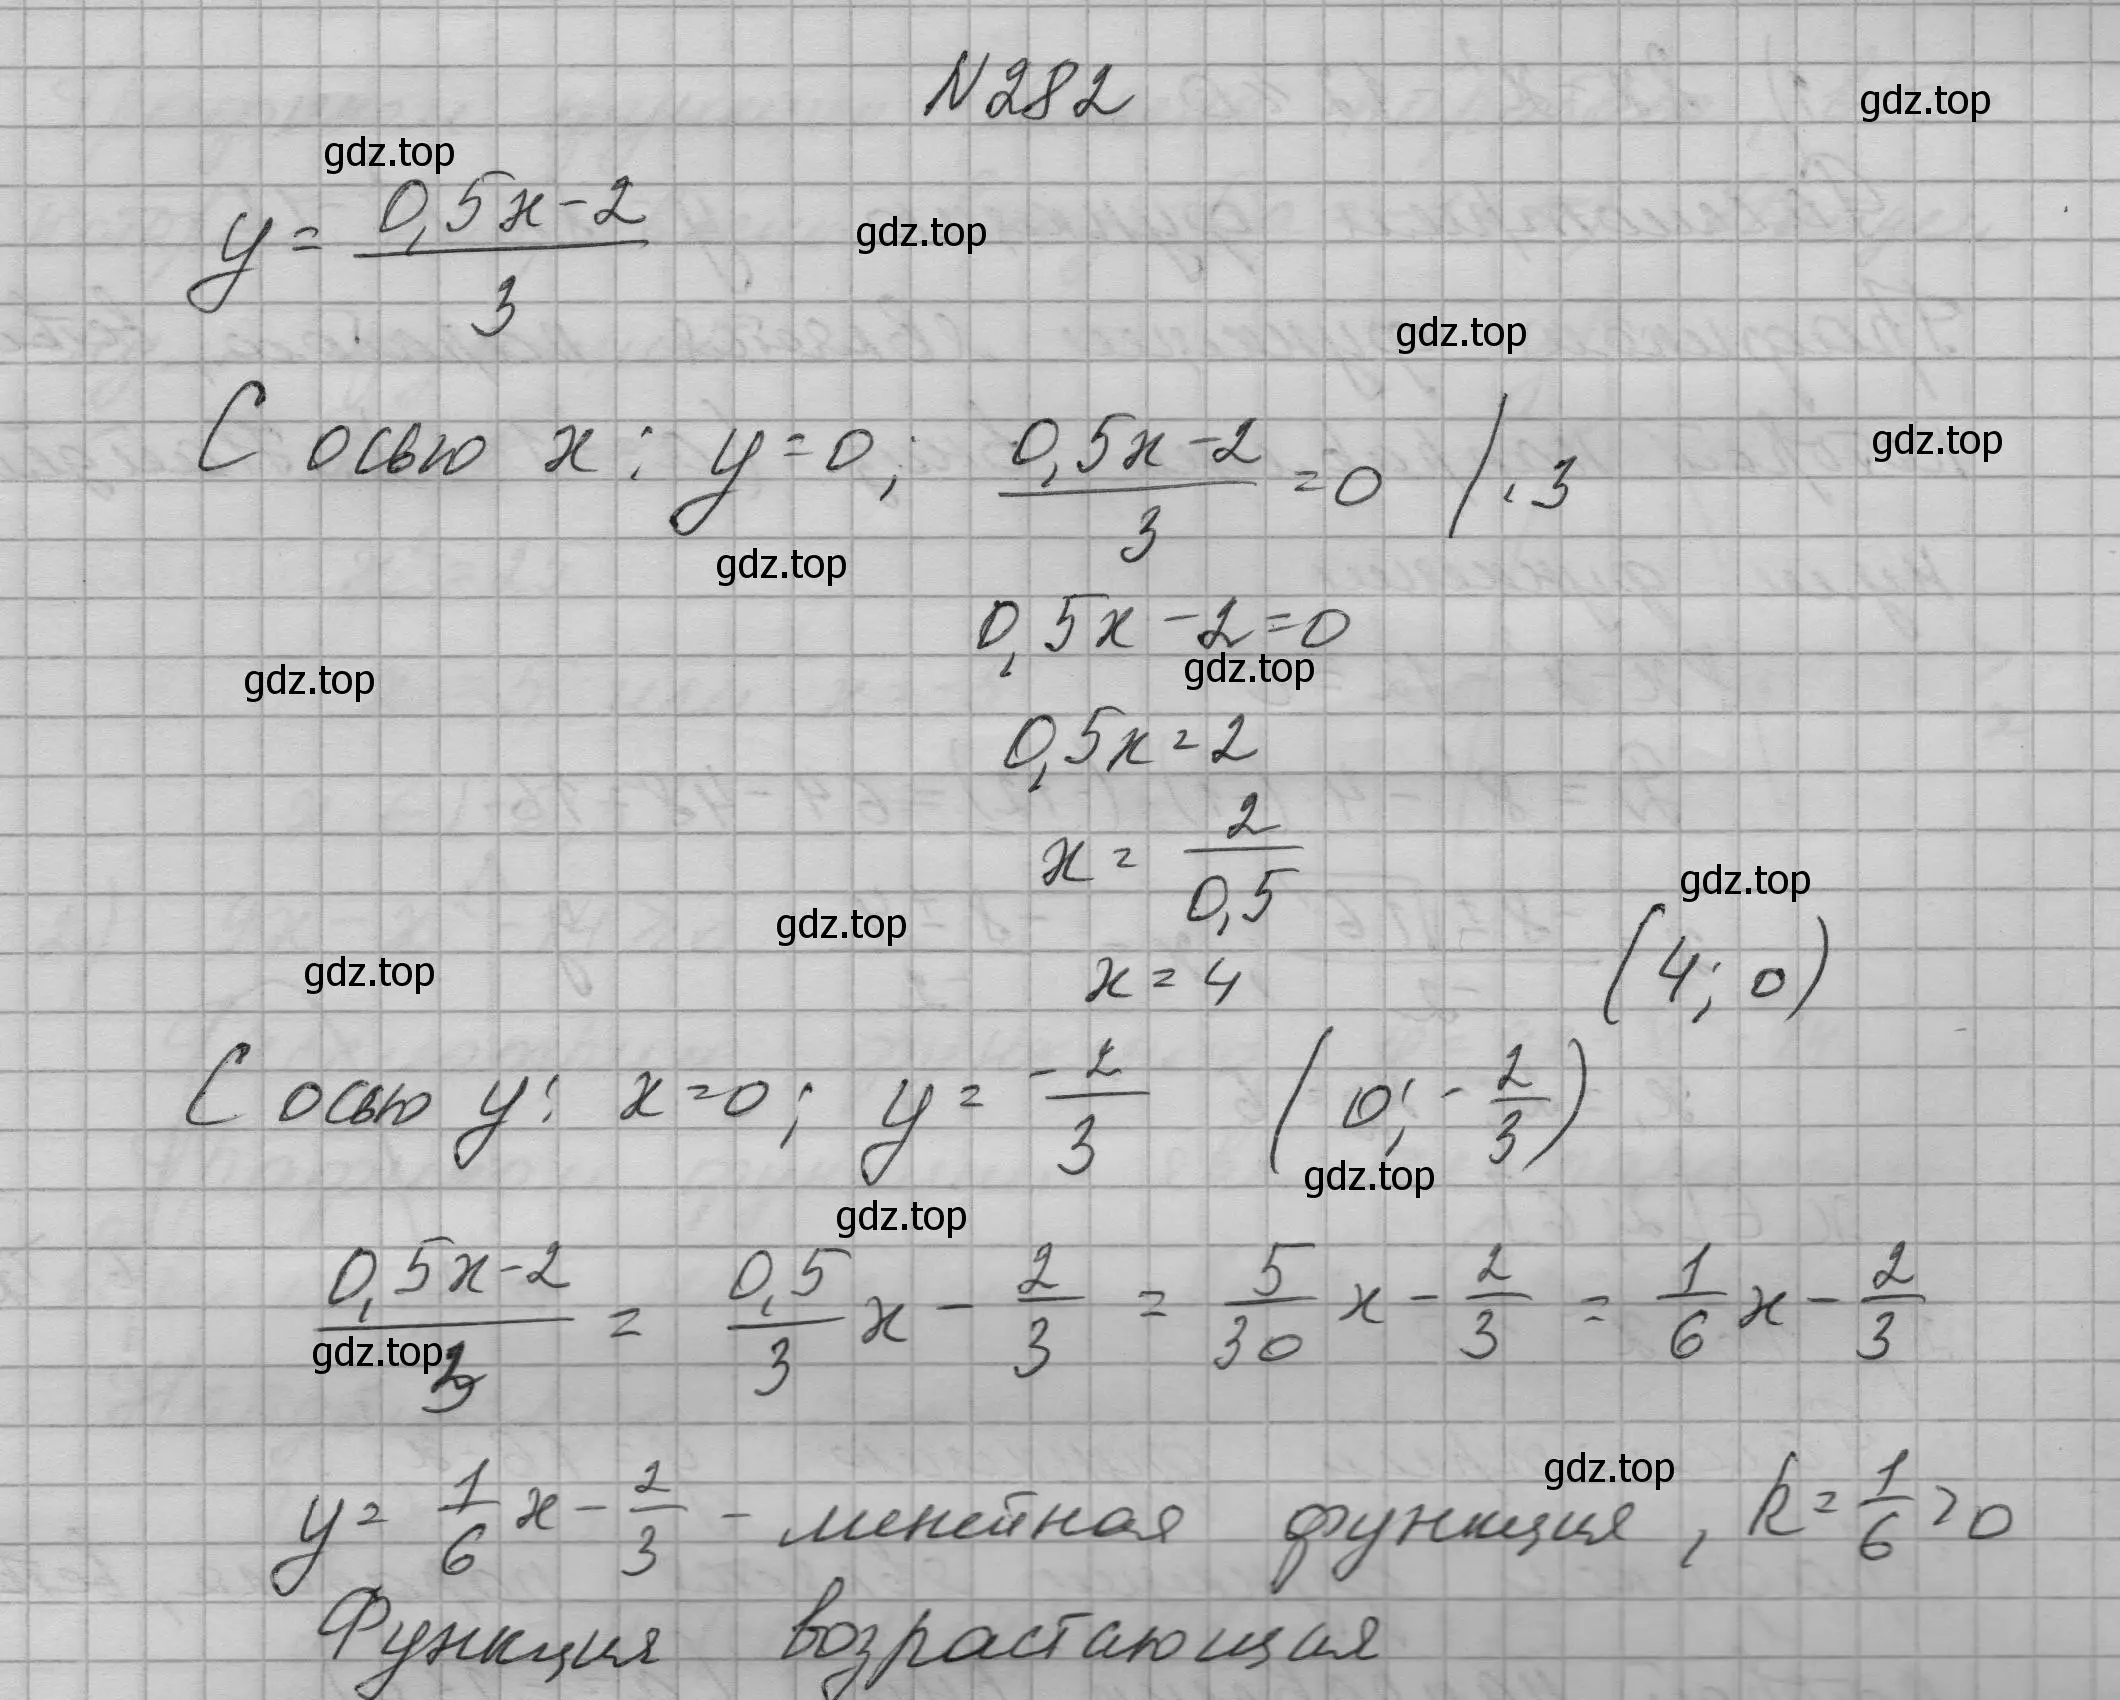 N 282
gdz.top
gdz.top
y = (0,5x-2)/3
gdz.top
gdz.top
С осью x: y=0; (0,5x-2)/3 = 0 / . 3
gdz.top
gdz.top
0,5x-2=0
gdz.top
gdz.top
0,5x=2
x = 2/0,5
gdz.top
gdz.top
gdz.top
x=4 (4; 0)
С осью y: x=0; y = -2/3 (0; -2/3)
gdz.top
gdz.top
(0,5x-2)/3 = 0,5/3 x - 2/3 = 5/30 x - 2/3 = 1/6 x - 2/3
gdz.top
gdz.top
y = 1/6 x - 2/3 - линейная функция, k = 1/6 >0
Функция возрастающая